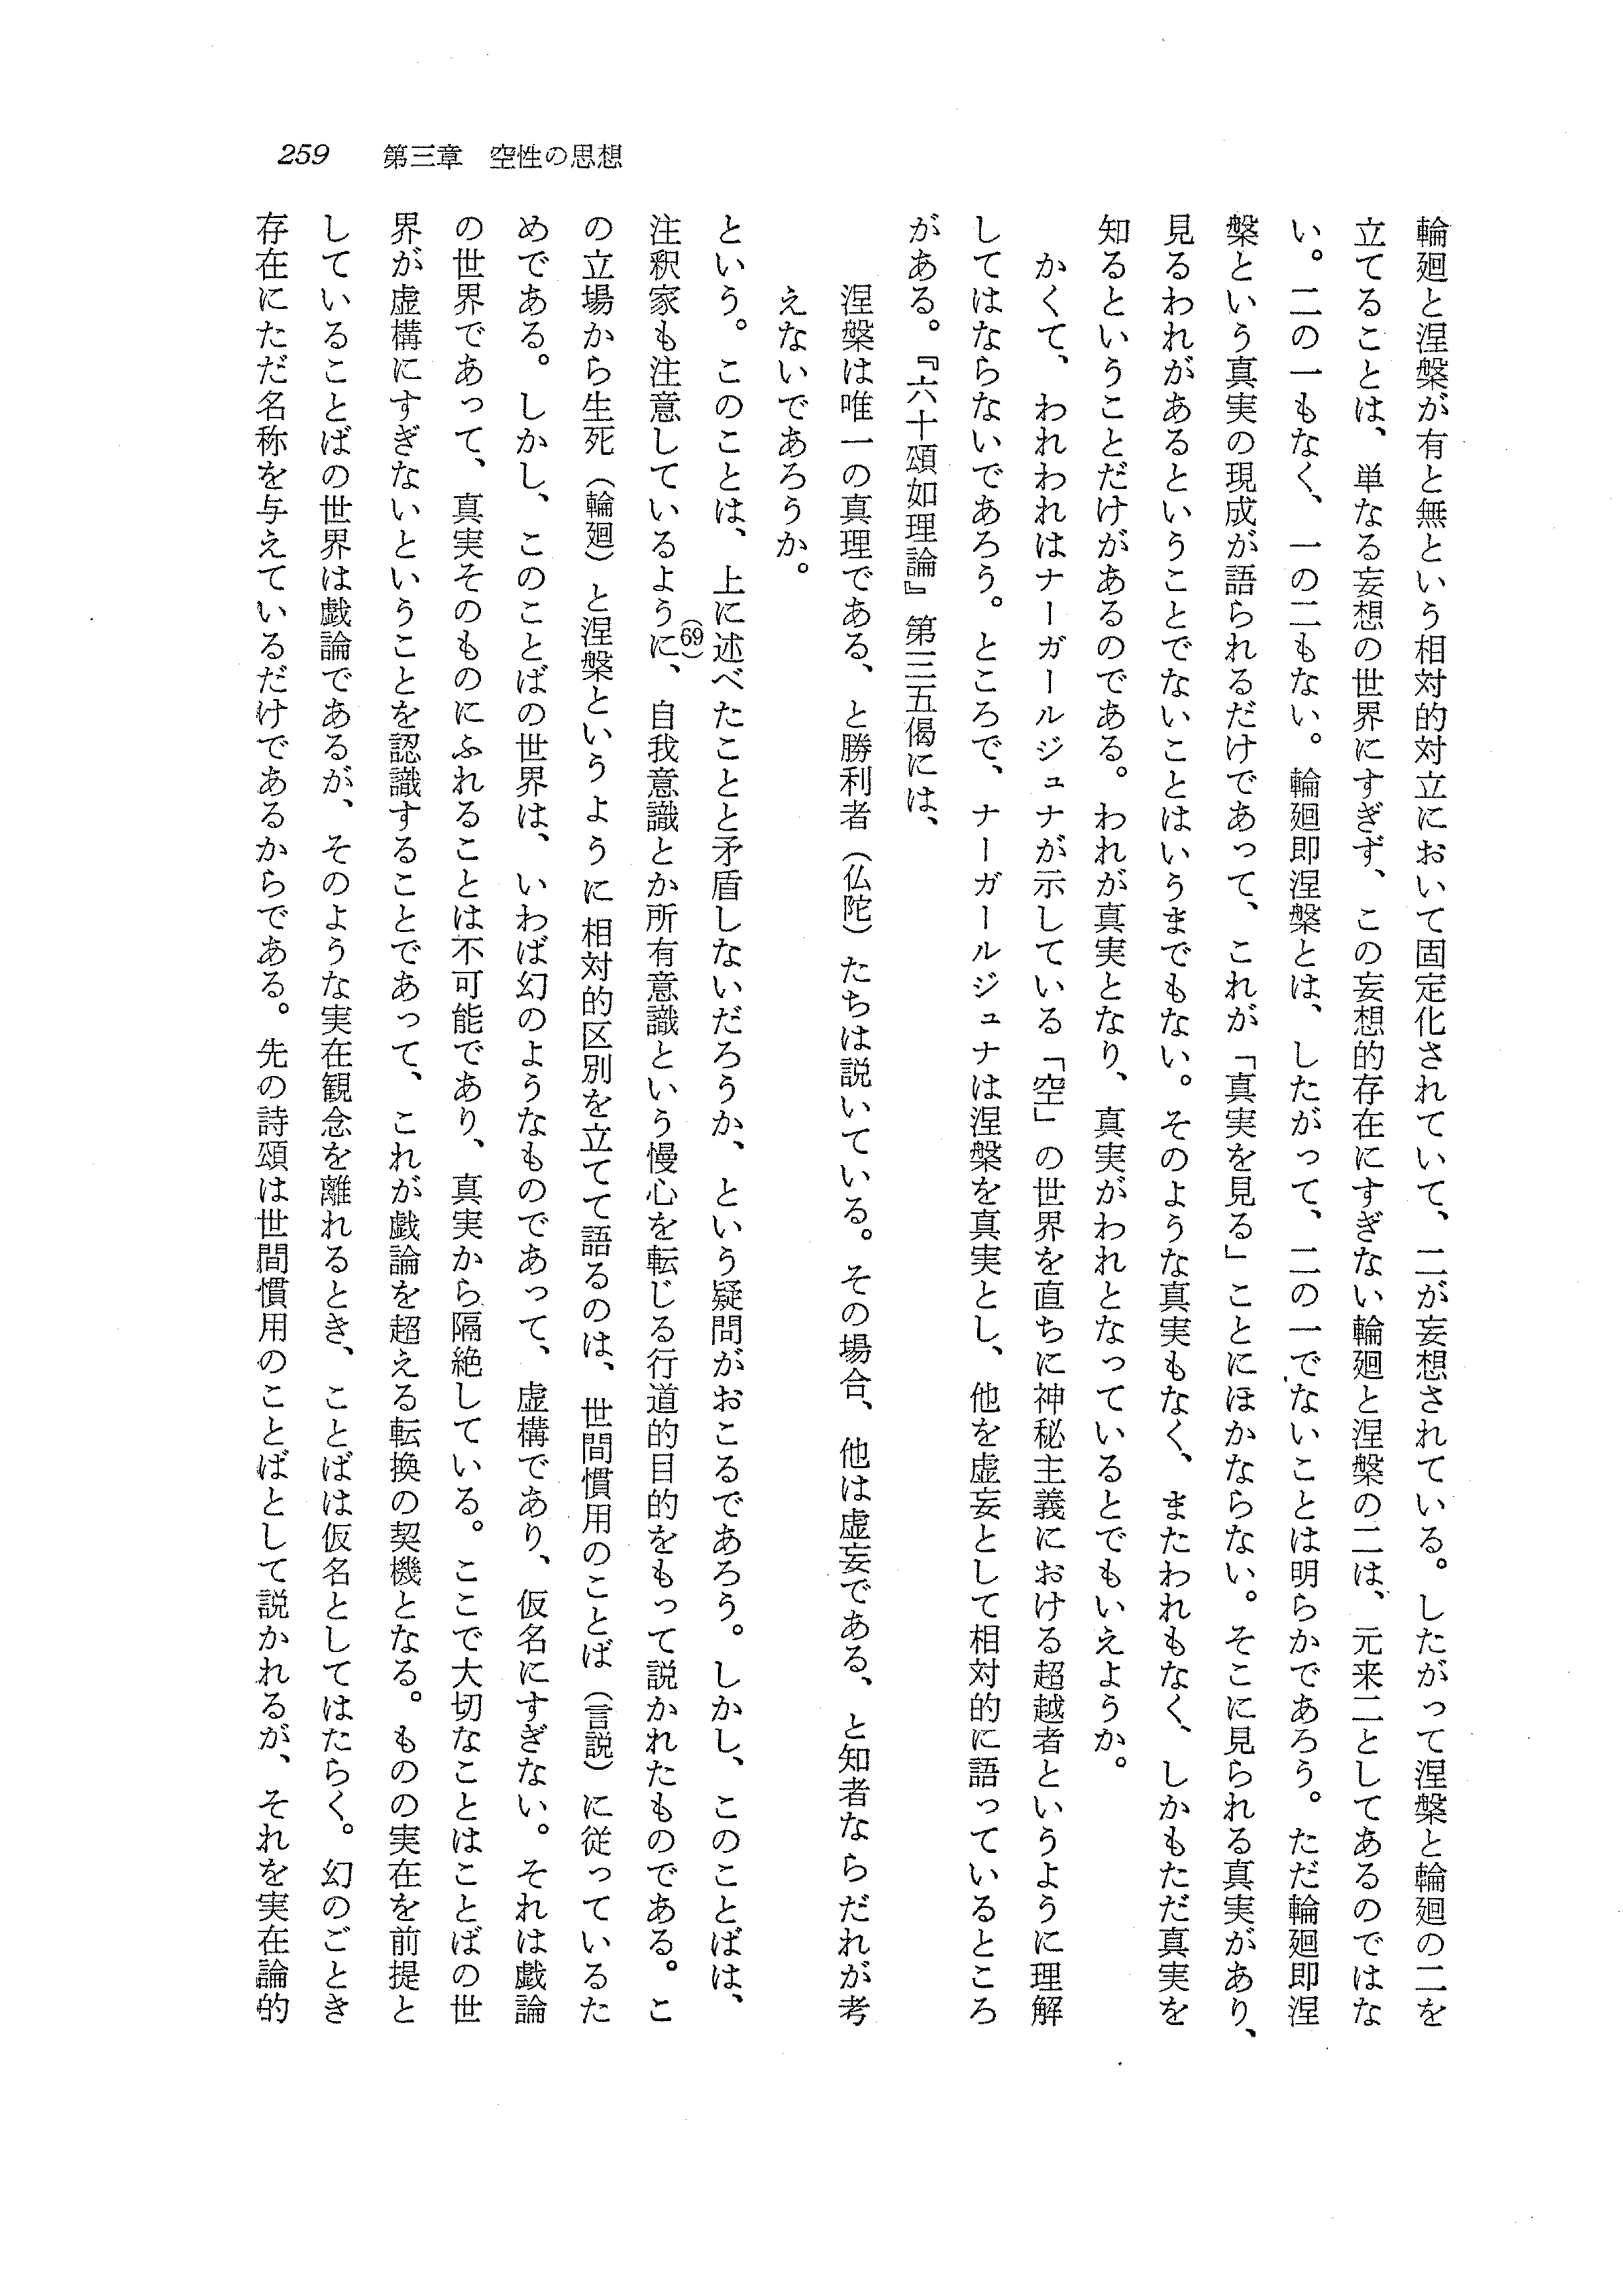 259 第三章 空性の思想
輪廻と涅槃が有と無という相対的対立において固定化されていて、二が妄想されている。したがって涅槃と輪廻の二を
立てることは、単なる妄想の世界にすぎず、この妄想的存在にすぎない輪廻と涅槃の二は、元来二としてあるのではな
い。二の一もなく、一の二もない。輪廻即涅槃とは、したがって、二の一でないことは明らかであろう。ただ輪廻即涅
槃という真実の現成が語られるだけであって、これが「真実を見る」ことにほかならない。そこに見られる真実があり、
見るわれがあるということでないことはいうまでもない。そのような真実もなく、またわれもなく、しかもただ真実を
知るということだけがあるのである。われが真実となり、真実がわれとなっているとでもいえようか。
かくて、われわれはナーガールジュナが示している「空」の世界を直ちに神秘主義における超越者というように理解
してはならないであろう。ところで、ナーガールジュナは涅槃を真実とし、他を虚妄として相対的に語っているところ
がある。『六十頌如理論』第三五偈には、
涅槃は唯一の真理である、と勝利者（仏陀）たちは説いている。その場合、他は虚妄である、と知者ならだれが考
えないであろうか。
という。このことは、上に述べたことと矛盾しないだろうか、という疑問がおこるであろう。しかし、このことばは、
注釈家も注意しているように(69)、自我意識とか所有意識という慢心を転じる行道的目的をもって説かれたものである。こ
の立場から生死（輪廻）と涅槃というように相対的区別を立てて語るのは、世間慣用のことば（言説）に従っているた
めである。しかし、このことばの世界は、いわば幻のようなものであって、虚構であり、仮名にすぎない。それは戯論
の世界であって、真実そのものにふれることは不可能であり、真実から隔絶している。ここで大切なことはことばの世
界が虚構にすぎないということを認識することであって、これが戯論を超える転換の契機となる。ものの実在を前提と
していることばの世界は戯論であるが、そのような実在観念を離れるとき、ことばは仮名としてはたらく。幻のごとき
存在にただ名称を与えているだけであるからである。先の詩頌は世間慣用のことばとして説かれるが、それを実在論的